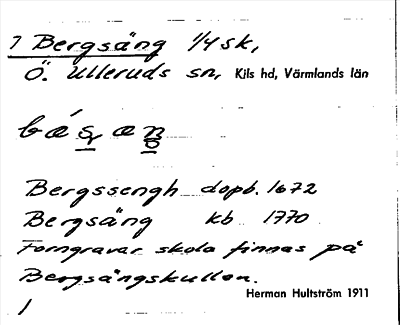 7 Bergsäng 1/4 sk,
Ö. Ulleruds sn, Kils hd, Värmlands län
bæ´s̠æn̥
Bergssengh dopb. 1672
Bergsäng kb 1770
Forngravar skola finnas på
Bergsängskullen.
Herman Hultström 1911
/